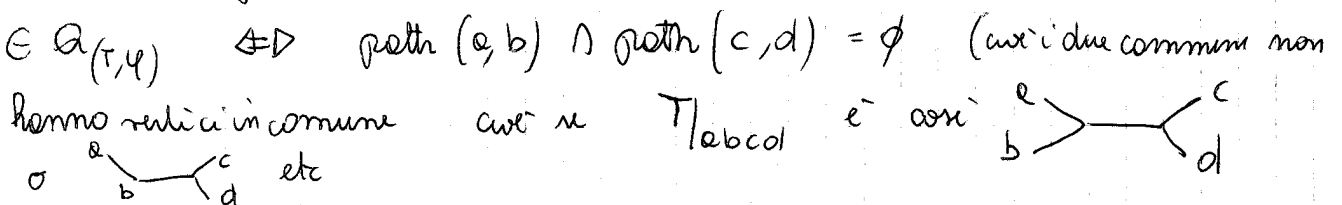 ∈ Q_(T,φ) ⇔ path (a,b) ∩ path (c,d) = ∅ (cioè i due cammini non
hanno vertici in comune cioè se T|abcd è così a b c d
o a b c d etc